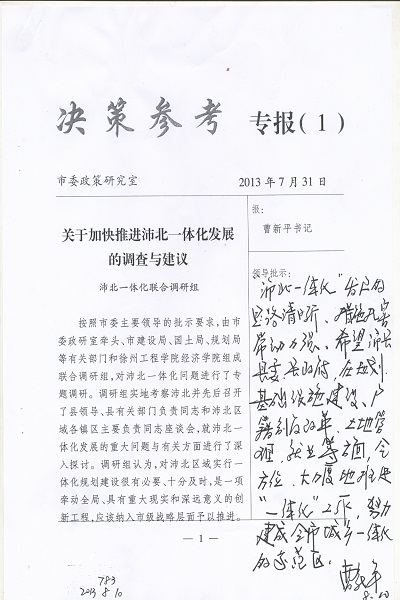 决策参考 专报(1)
市委政策研究室 2013年7月31日
关于加快推进沛北一体化发展
的调查与建议
沛北一体化联合调研组
按照市委主要领导的批示要求，由市
委政研室牵头、市建设局、国土局、规划局
等有关部门和徐州工程学院经济学院组成
联合调研组，对沛北一体化问题进行了专
题调研。调研组实地考察沛北并先后召开
了县领导、县有关部门负责同志和沛北区
域各镇区主要负责同志座谈会，就沛北一
体化发展的重大问题与有关方面进行了深
入探讨。调研组认为，对沛北区域实行一
体化规划建设很有必要、十分及时，是一项
牵动全局、具有重大现实和深远意义的创
新工程，应该纳入市级战略层面予以推进。
报：
曹新平书记
领导批示：
"沛北一体化"发展的
思路清晰、措施
带动力强、希望沛县
县委县政府，在规划、
基础设施建设、户
籍制度改革、土地管
理、就业等方面，全
方位、大力度地推进
"一体化"工作，努力
建成全市城乡一体化
的示范区。
曹新平
8.10
— 1 —
783
2013 8.10